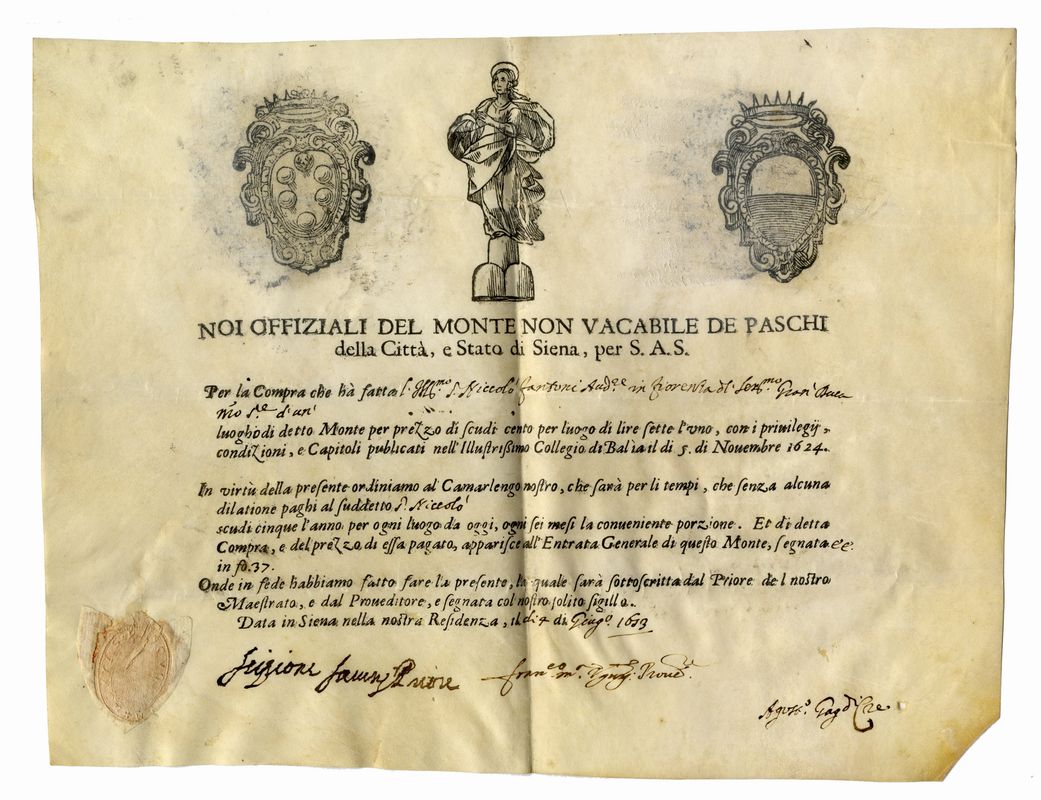 NOI OFFIZIALI DEL MONTE NON VACABILE DE PASCHI
della Città, e Stato di Siena, per S. A. S.
Per la Compra che hà fatta l'Ill.mo S. Niccolò Fantoni Aud.re in Fiorenza di Ser.mo Gran Duca
luoghodi detto Monte per prezzo di scudi cento per luogo di lire sette l'uno, con i privilegij,
condizioni, e Capitoli publicati nell'Illustrissimo Collegio di Balìa il di 5. di Nouembre 1624.
In virtù della presente ordiniamo al Camarlengo nostro, che sarà per li tempi, che senza alcuna
dilatione paghi al suddetto S. Niccolò
scudi cinque l'anno per ogni luogo da oggi, ogni sei mesi la conueniente porzione. Et di detta
Compra, e del prezzo di essa pagato, apparisce all'Entrata Generale di questo Monte, segnata
in fo. 37.
Onde in fede habbiamo fatto fare la presente, la quale sarà sottoscritta dal Priore del nostro
Maestrato, e dal Proueditore, e segnata col nostro solito sigillo.
Data in Siena nella nostra Residenza, il di 4 di Giug.o
Priore